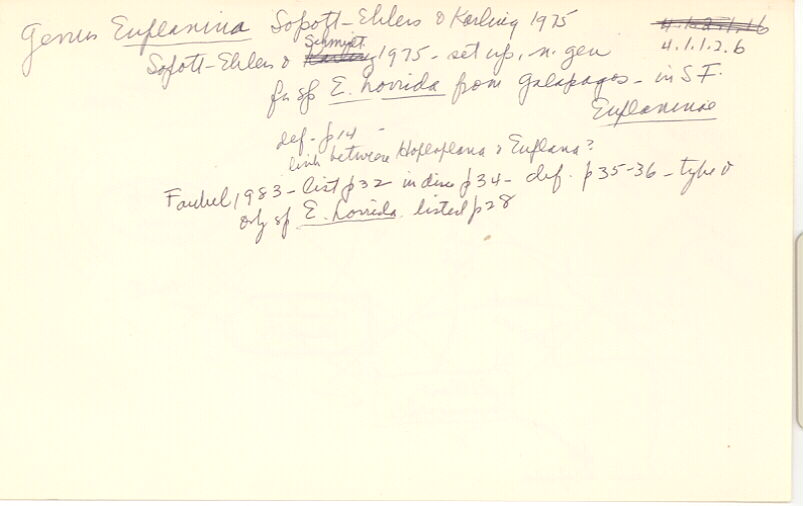 Genus Euplanina Sopott-Ehlers & Karling 1975
4.1.2.1.16
4.1.1.2.6
Sopott-Ehlers & Karling Schmidt 1975 - set up, n. gen
for sp E. horrida from Galapagos - in S F.
Euplaninae
def - p 14 -
link between Hoploplana & Euplana?
Faubel, 1983 - list p 32 in disc p 34 - def. p 35-36 - type &
only sp E. horrida. listed p 28